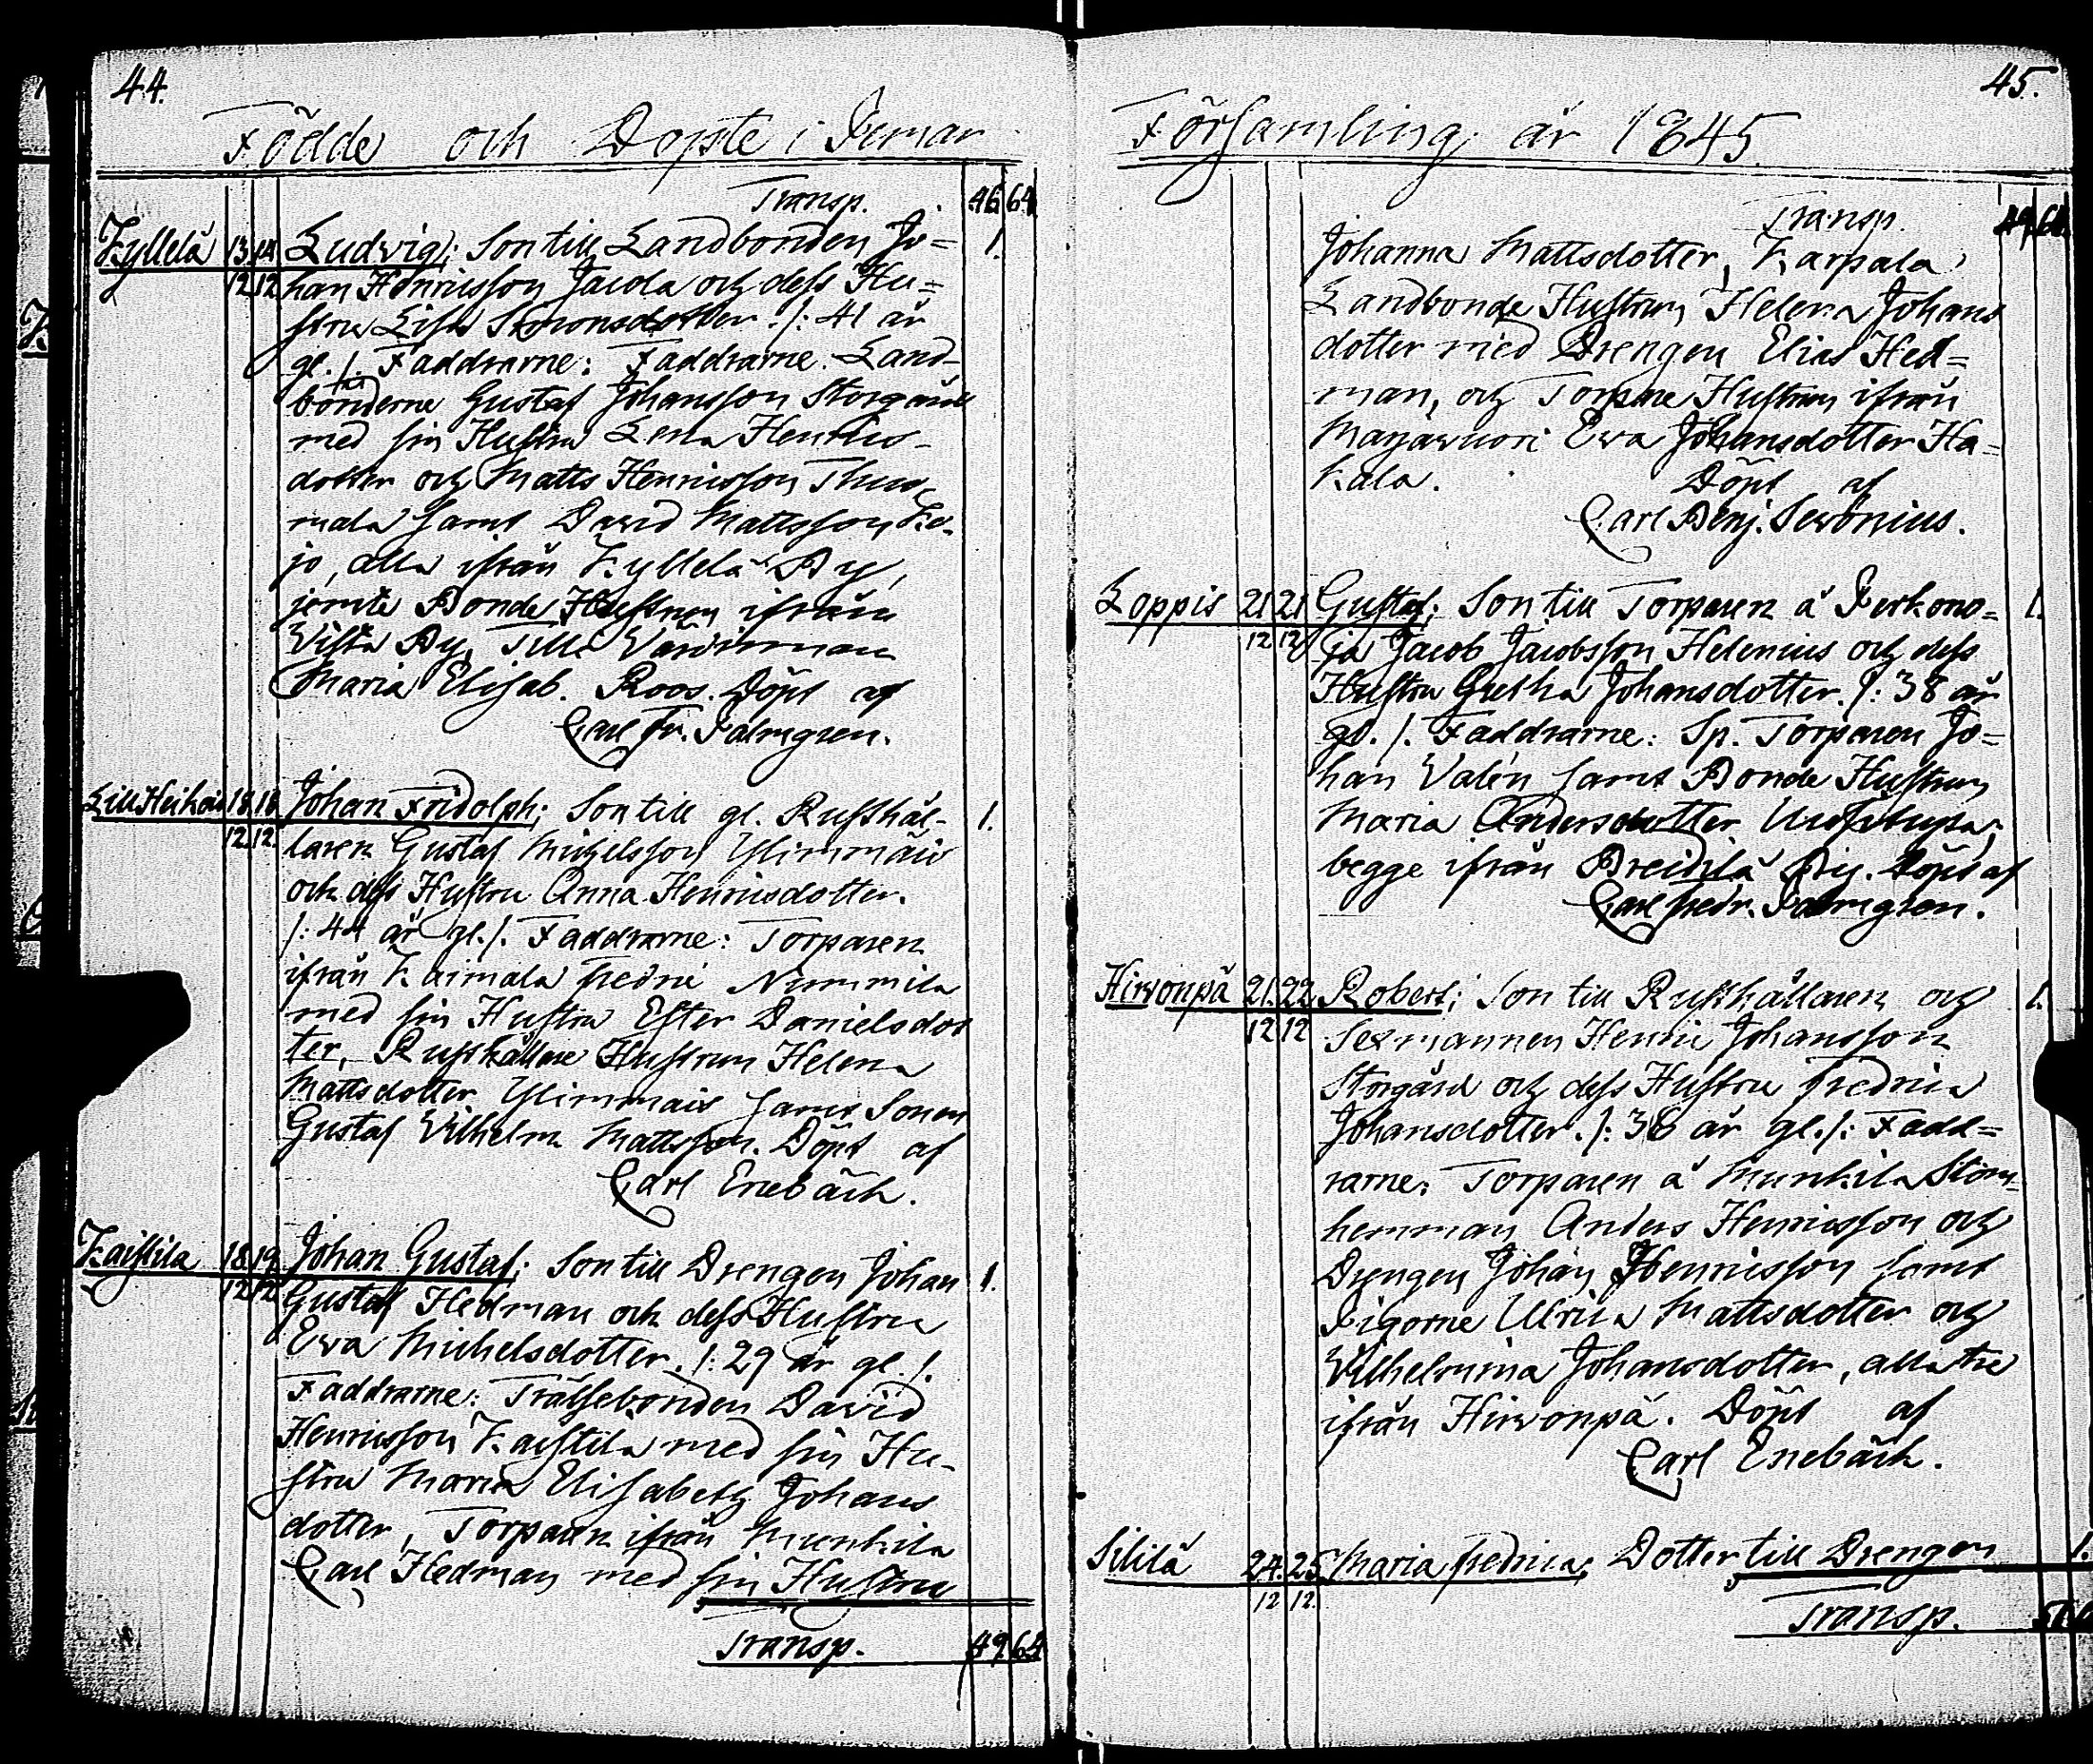 44.
Födde och Döpte i Pemar
Transp. 46 64
Kyllelä 13 14 Ludvig; Son till Landbonden Jo= 1.
12 12 han Henricsson Jacola och dess Hu=
stru Lisa Simonsdotter. /: 41 år
gl. /. Faddrarne: Faddrarne. Land-
bönderne Gustaf Johansson Storgård
med sin Hustru Lena Henrics-
dotter och Matts Henricsson
mala samt David Mattsson Ke-
jo, alla ifrån Kyllelä By,
jemte Bonde Hustrun ifrån
Vista By, Tilli
Maria Elisab. Roos. Döpt af
Carl Fr. Palmgren.
Lill Heikois 18 18 Johan Fridolph; Son till gl. Rusthål- 1.
12 12. laren Gustaf Michelsson Ylimmäis
och dess Hustru Anna Henricsdotter.
/: 44 år gl. /. Faddrarne: Torparen
ifrån Kaimala Fredric Nummila
med sin Hustru Ester Danielsdot
ter, Rusthållare Hustrun Helena
Mattsdotter Ylimmäis samt Sonen
Gustaf Vilhelm Mattsson. Döpt af
Carl Enebäck.
Kaistila 18 19 Johan Gustaf; Son till Drengen Johan 1.
12 12 Gustaf Hedman och dess Hustru
Eva Michelsdotter. /: 29 år gl. /.
Faddrarne: Frälsebonden David
Henricsson Kaistila med sin Hu-
stru Maria Elisabeth Johans
dotter, Torparen ifrån Munkila
Carl Hedman med sin Hustru
Transp. 49 64
45.
Församling; år 1845.
Transp. 49 64
Johanna Mattsdotter, Karpala
Landbonde Hustrun Helena Johans
dotter med Drengen Elias Hed=
man, och Torpare Hustrun ifrån
Eva Johansdotter Ha=
kala. Döpt af
Carl Benj. Sevonius.
Loppis 21 21 Gustaf; Son till Torparen å Perkono= 1.
12 12 ja Jacob Jacobsson Helenius och dess
Hustru Gretha Johansdotter. /: 38 år
gl. /. Faddrarne: Sp. Torparen Jo=
han Valén samt Bonde Hustrun
Maria Andersdotter
begge ifrån Breidilä By. Döpt af
Carl Fredr. Palmgren.
Hirvonpä 21. 22 Robert; Son till Rusthållaren och 1.
12 12 Sexmannen Henric Johansson
Storgård och dess Hustru Fredrica
Johansdotter. /: 36 år gl. /: Fadd=
rarne: Torparen å Munkila Stom
hemman Anders Henricsson och
Drengen Johan Henricsson samt
Pigorne Ulrica Mattsdotter och
Vilhelmina Johansdotter, alla tre
ifrån Hirvonpä. Döpt af
Carl Enebäck.
Sililä 24. 25 Maria Fredrica, Dotter till Drengen 1.
12 12.
Transp.